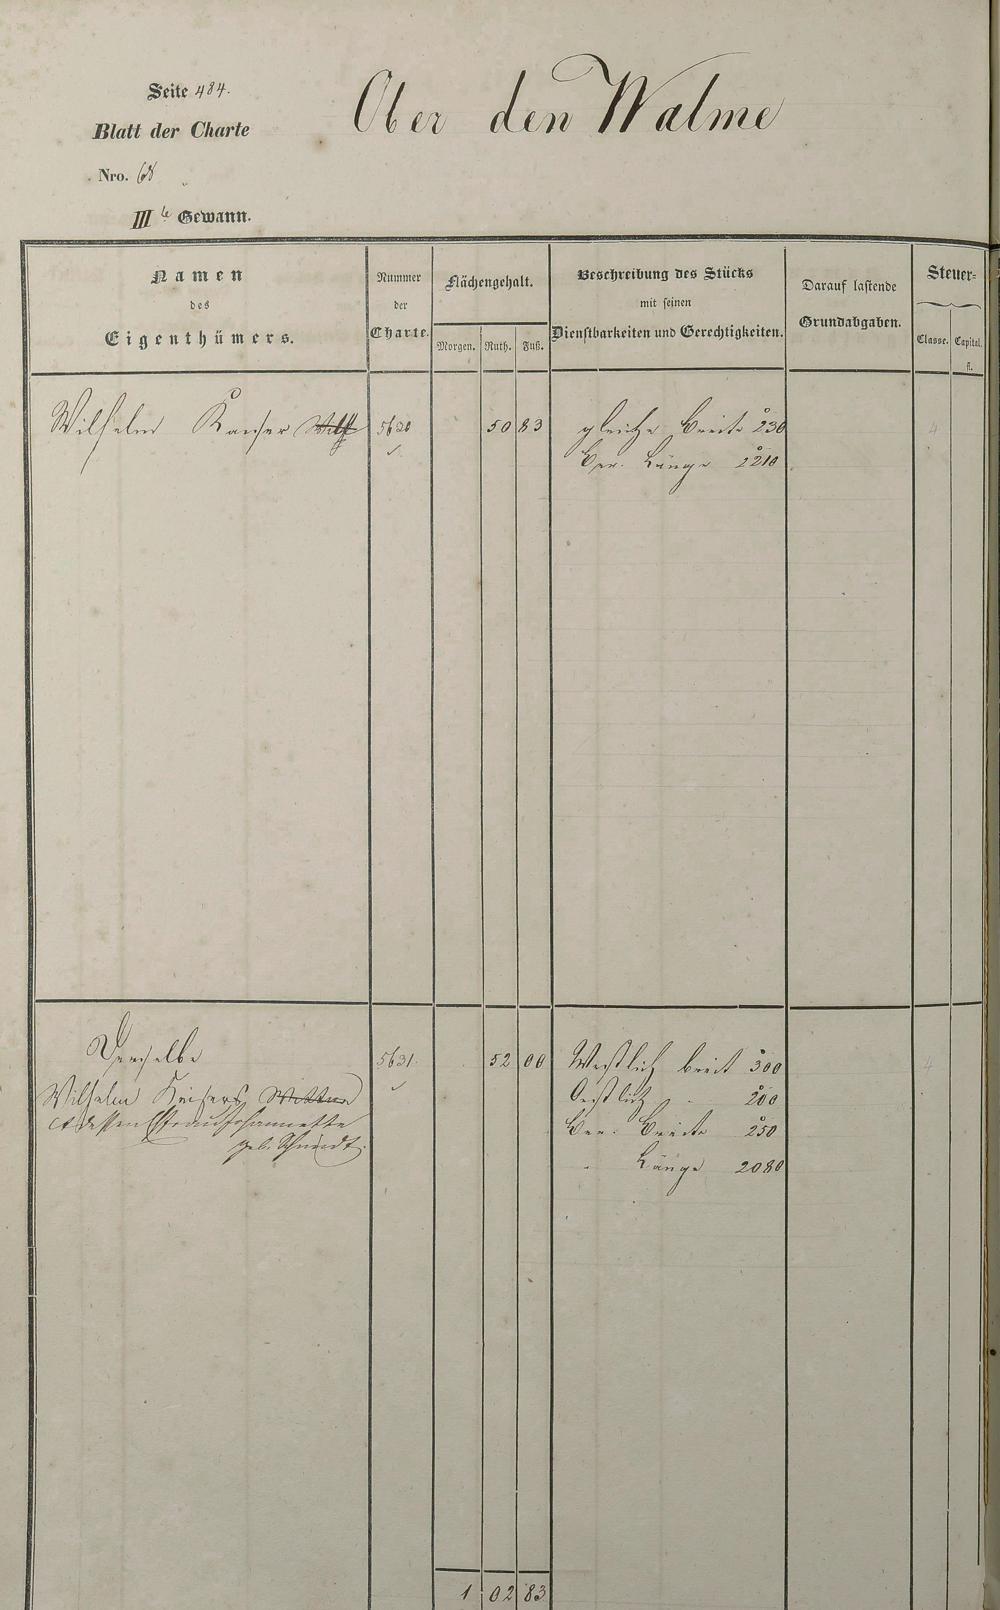 Seite 484.
Ober den Walme
Blatt der Charte
Nro. 68
III te Gewann.
Namen
des
Eigenthümers.
Nummer
der
Charte.
Flächengehalt.
Morgen. Ruth. Fuß.
Beschreibung des Stücks
mit seinen
Dienstbarkeiten und Gerechtigkeiten.
Darauf lastende
Grundabgaben.
Steuer=
Classe. Capital.
fl.
Wilhelm Kayser 5630 50 83 gleiche Breite 230 4
Ber. Länge 2210
Derselbe 5631. 52 00 Westlich breit 300 4
Wilhelm Keisers Oestlich " 200
et dessen Frau Johannette Ber. Breite 250
geb. Schmidt. " Länge 2080
1 02 83